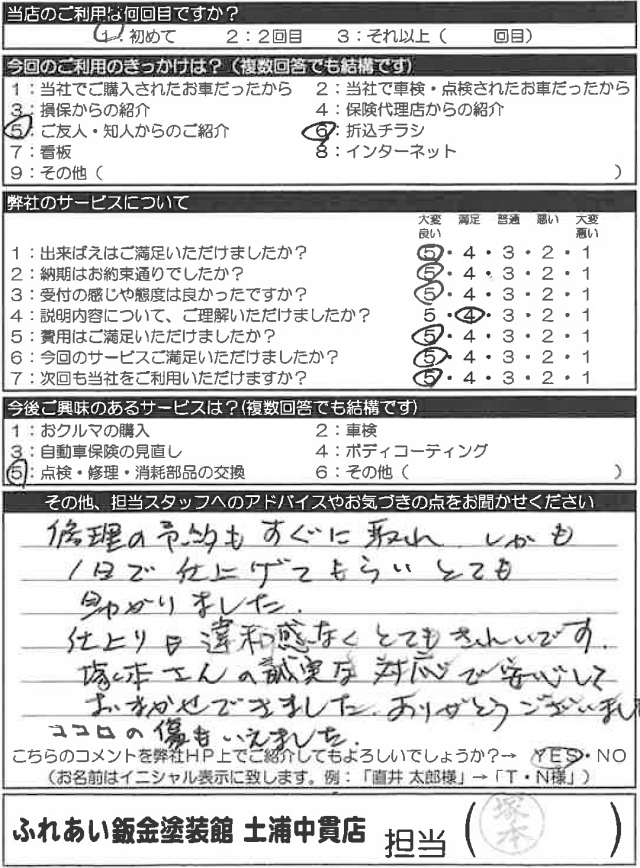 当店のご利用は何回目ですか?
1:初めて 2:2回目 3:それ以上( 回目)
今回のご利用のきっかけは?(複数回答でも結構です)
1:当社でご購入されたお車だったから 2:当社で車検・点検されたお車だったから
3:損保からの紹介 4:保険代理店からの紹介
5:ご友人・知人からのご紹介 6:折込チラシ
7:看板 8:インターネット
9:その他( )
弊社のサービスについて
大変良い 満足 普通 悪い 大変悪い
1:出来ばえはご満足いただけましたか? 5・4・3・2・1
2:納期はお約束通りでしたか? 5・4・3・2・1
3:受付の感じや態度は良かったですか? 5・4・3・2・1
4:説明内容について、ご理解いただけましたか? 5・4・3・2・1
5:費用はご満足いただけましたか? 5・4・3・2・1
6:今回のサービスご満足いただけましたか? 5・4・3・2・1
7:次回も当社をご利用いただけますか? 5・4・3・2・1
今後ご興味のあるサービスは?(複数回答でも結構です)
1:おクルマの購入 2:車検
3:自動車保険の見直し 4:ボディコーティング
5:点検・修理・消耗部品の交換 6:その他( )
その他、担当スタッフへのアドバイスやお気づきの点をお聞かせください
修理の予約もすぐに取れ しかも
1日で仕上げてもらいとても
助かりました.
仕上り日違和感なくとてもきれいです.
塚本さんの誠実な対応で安心して
おまかせできました.ありがとうございました
ココロの傷もいえました.
こちらのコメントを弊社HP上でご紹介してもよろしいでしょうか?→ YES・NO
(お名前はイニシャル表示に致します。例:「直井 太郎様」→「T・N様」)
ふれあい鈑金塗装館 土浦中貫店 担当(塚本)